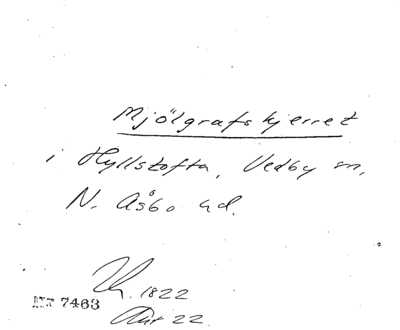 Mjölgrafskjerret
i Hyllstofta, Vedby sn,
N. Åsbo hd.
1822
Akt 22.
Nr 7463